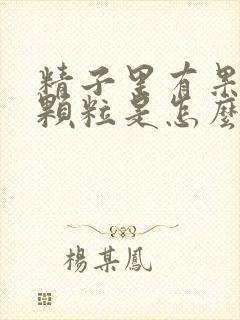 精子里有果
顆粒是怎麼
楊某鳳